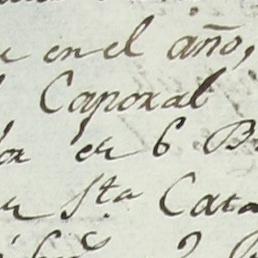 en el año,
Caporal
en 6 B
Sta Cata